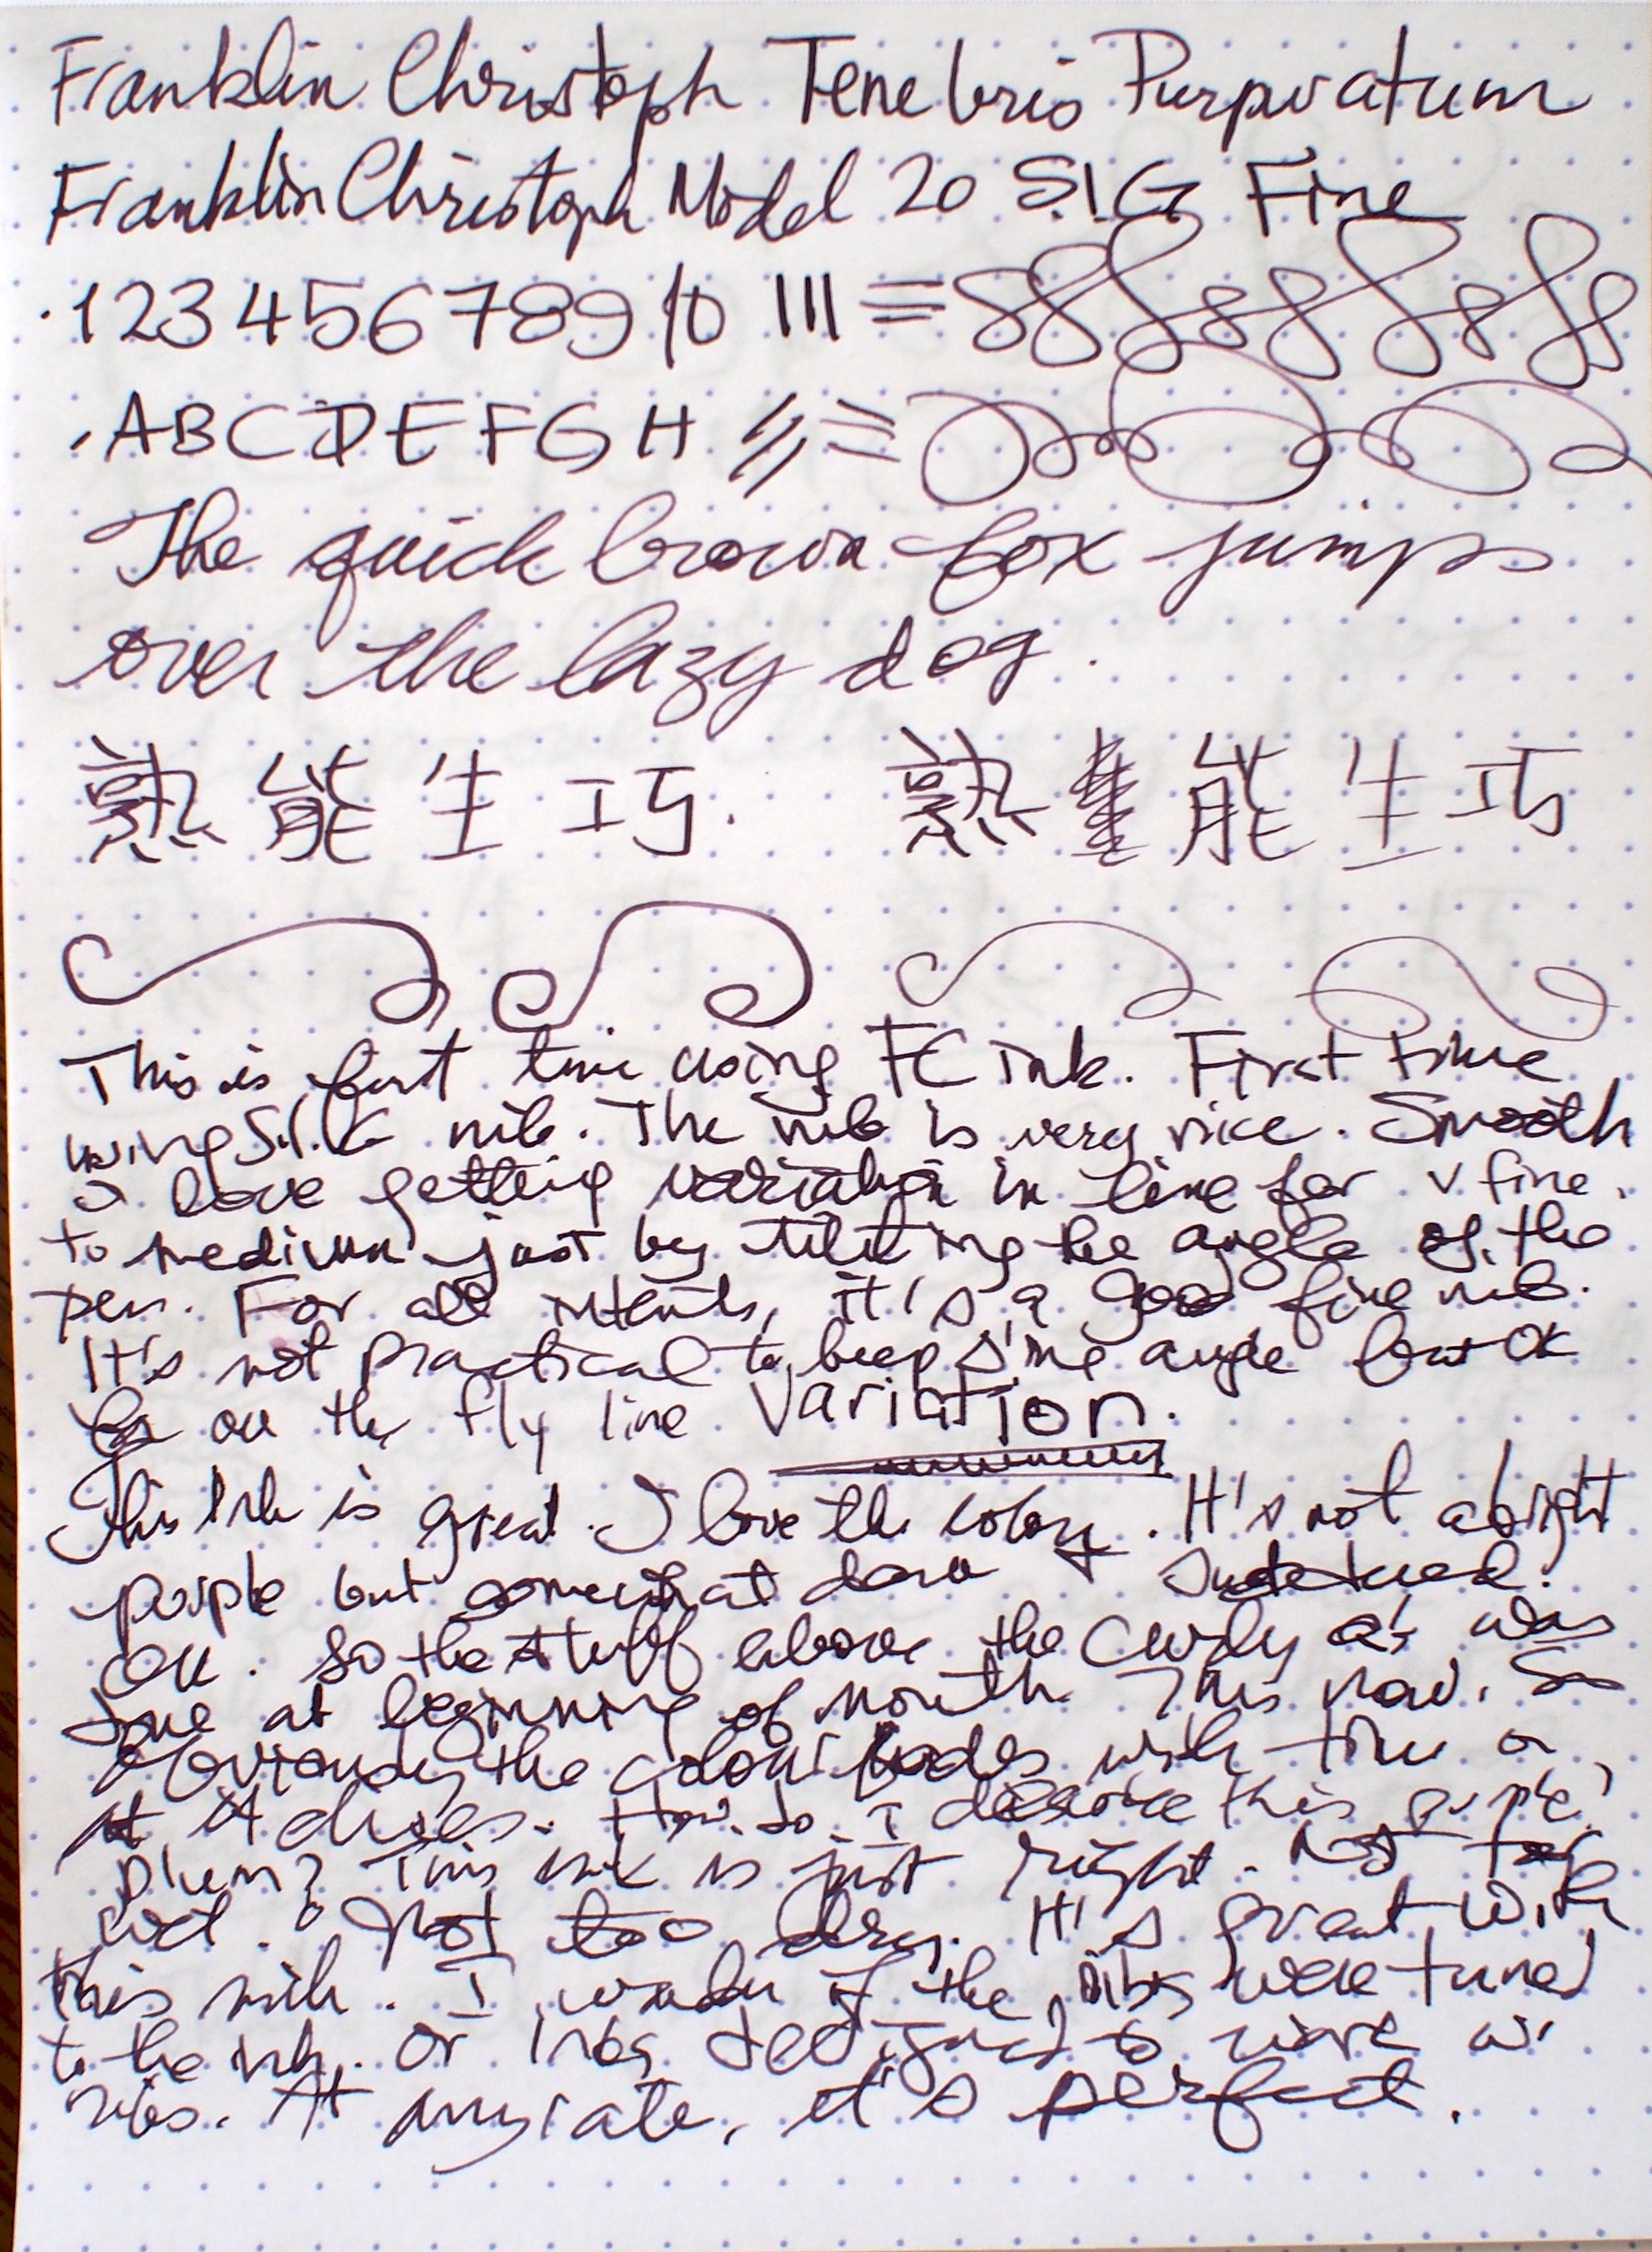 Franklin Christoph Tenebris Purpuratum
Franklin Christoph Model 20 S.I.G Fine
1 2 3 4 5 6 7 8 9 10
A B C D E F G H
The quick brown fox jumps
over the lazy dog.
熟能生巧. 熟能生巧
This is first time using FC ink. First time
using S.I.G nib. The nib is very nice. Smooth
I love getting variation in line for v fine
to medium just by tilting the angle of the
pen. For all intents, it's a good fine nib.
It's not practical to keep s'me angle but ok
for on the fly line variation.
This ink is great. I love the colour. It's not a bright
purple but somewhat dark
OK. So the stuff above the curly Q's was
done at beginning of month. This now. So
obviously the colour fades with time or
as it dries. How do I describe this purple?
Plum? This ink is just right. Not too
wet. Not too dry. It's great with
this nib. I wonder if the nibs were tuned
to the ink. Or inks designed to work w/
nibs. At any rate, it's perfect.